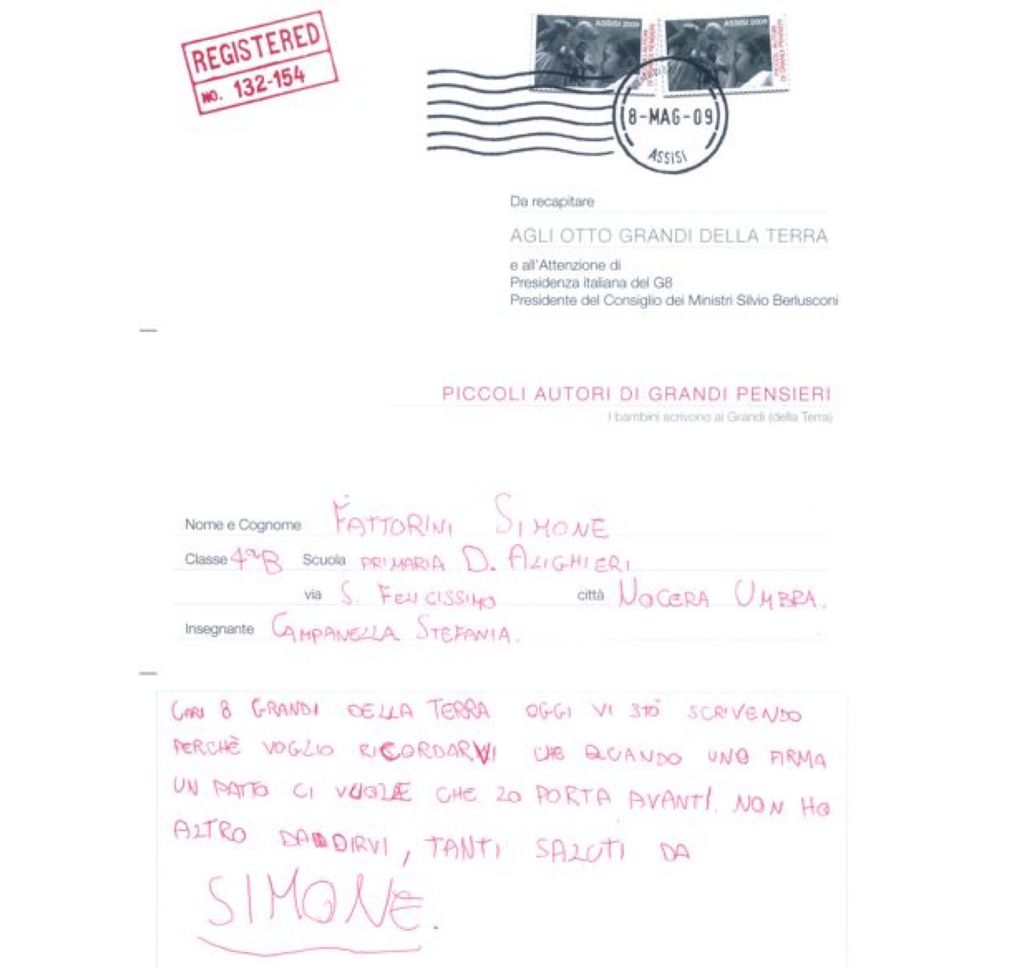 REGISTERED
NO. 132-154
ASSISI 2009
ASSISI 2009
PICCOLI AUTORI
DI GRANDI PENSIERI
8-MAG-09
ASSISI
Da recapitare
AGLI OTTO GRANDI DELLA TERRA
e all'Attenzione di
Presidenza italiana del G8
Presidente del Consiglio dei Ministri Silvio Berlusconi
PICCOLI AUTORI DI GRANDI PENSIERI
I bambini scrivono ai Grandi (della Terra)
Nome e Cognome FATTORINI SIMONE
Classe 4ªB Scuola PRIMARIA D. ALIGHIERI
via S. FELICISSIMO città NOCERA UMBRA.
Insegnante CAMPANELLA STEFANIA.
CARI 8 GRANDI DELLA TERRA OGGI VI STÒ SCRIVENDO
PERCHÈ VOGLIO RICORDARVI CHE QUANDO UNO FIRMA
UN PATTO CI VUOLE CHE LO PORTA AVANTI. NON HO
ALTRO DA DIRVI, TANTI SALUTI DA
SIMONE.